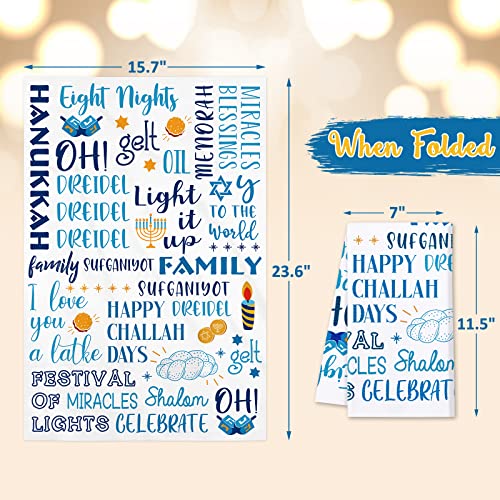 15.7"
HANUKKAH
Eight Nights
OH!
gelt
OIL
MENORAH
MIRACLES
BLESSINGS
DREIDEL
DREIDEL
DREIDEL
Light
it
up
y
TO THE
World
family SUFGANIYOT FAMILY
SUFGANIYOT
I love
you
a latke
HAPPY DREIDEL
CHALLAH
DAYS
gelt
FESTIVAL
OF MIRACLES Shalom
LIGHTS CELEBRATE
OH!
23.6"
When Folded
7"
SUFGANIYOT
HAPPY DREI
CHALLAH
DAYS
CLES Shalom
CELEBR
11.5"